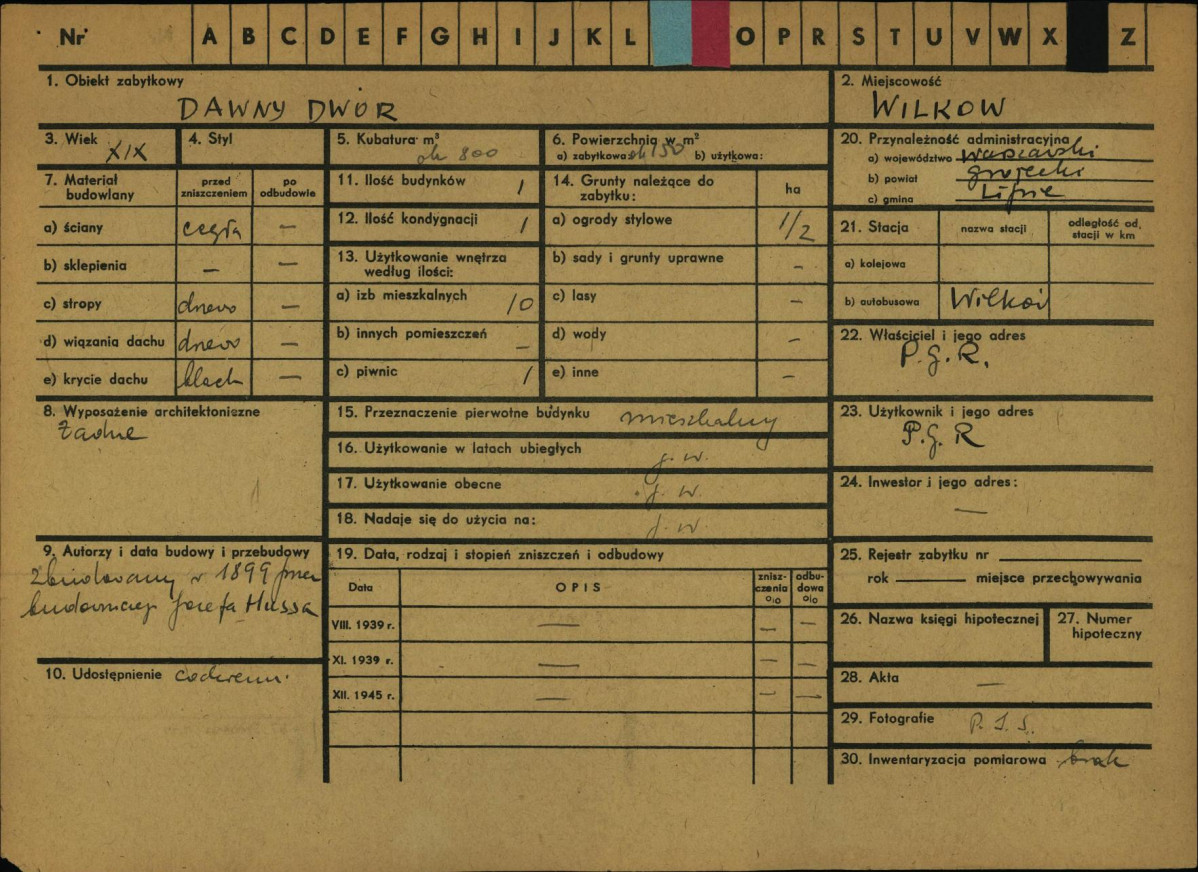 Nr A B C D E F G H I J K L O P R S T U V W X Z
1. Obiekt zabytkowy
DAWNY DWÓR
2. Miejscowość
WILKÓW
3. Wiek XIX
4. Styl
5. Kubatura m³
ok 800
6. Powierzchnia w m²
a) zabytkowa ok 150 b) użytkowa:
20. Przynależność administracyjna
a) województwo warszawski
b) powiat grójecki
c) gmina Lipie
7. Materiał budowlany
przed zniszczeniem
po odbudowie
a) ściany cegła —
b) sklepienia — —
c) stropy drewo —
d) wiązania dachu drewo —
e) krycie dachu blach —
11. Ilość budynków 1
12. Ilość kondygnacji 1
13. Użytkowanie wnętrza według ilości:
a) izb mieszkalnych 10
b) innych pomieszczeń —
c) piwnic 1
14. Grunty należące do zabytku:
ha
a) ogrody stylowe 1/2
b) sady i grunty uprawne —
c) lasy —
d) wody —
e) inne —
21. Stacja
nazwa stacji
odległość od stacji w km
a) kolejowa
b) autobusowa Wilków
22. Właściciel i jego adres
P.G.R.
8. Wyposażenie architektoniczne
żadne
15. Przeznaczenie pierwotne budynku mieszkalny
16. Użytkowanie w latach ubiegłych j. w.
17. Użytkowanie obecne j. w.
18. Nadaje się do użycia na: j. w.
23. Użytkownik i jego adres
P.G.R
24. Inwestor i jego adres:
—
9. Autorzy i data budowy i przebudowy
zbudowany w 1899 przez
budowniczego Józefa Hussa
10. Udostępnienie codzienn.
19. Data, rodzaj i stopień zniszczeń i odbudowy
Data
OPIS
zniszczenia %
odbudowa %
VIII. 1939 r. — — —
XI. 1939 r. — — —
XII. 1945 r. — — —
25. Rejestr zabytku nr
rok miejsce przechowywania
26. Nazwa księgi hipotecznej
27. Numer hipoteczny
28. Akta —
29. Fotografie P.I.S.
30. Inwentaryzacja pomiarowa brak